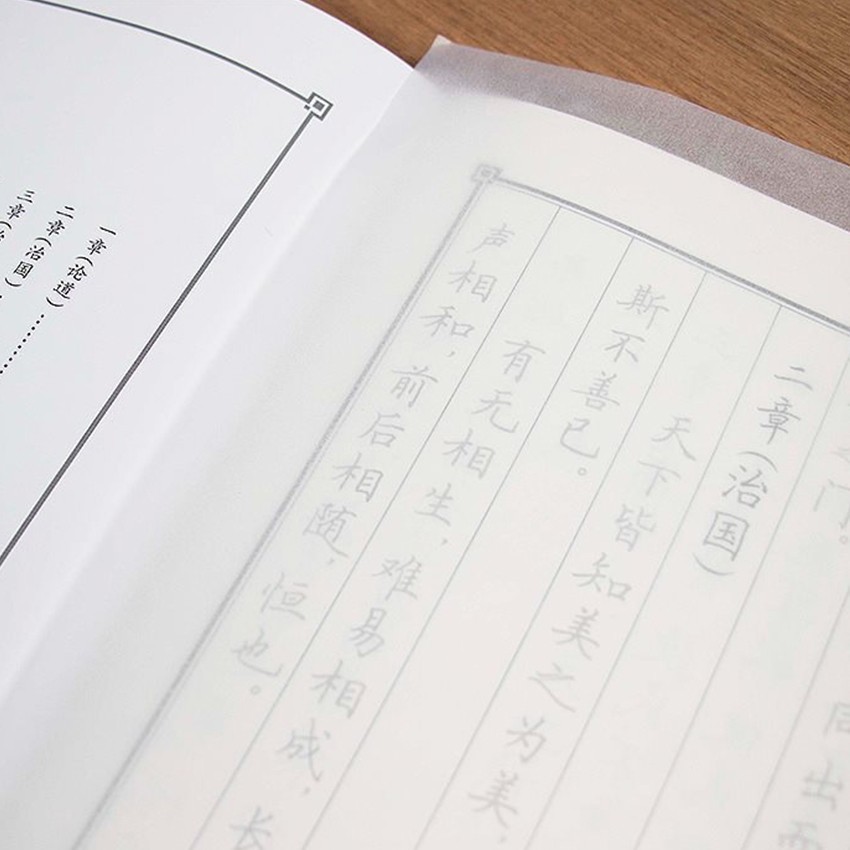 一章(论道)
二章(治国)
三章(
门。
同出而
二章(治国)
天下皆知美之为美，
斯不善已。
有无相生，难易相成，长
声相和，前后相随，恒也。